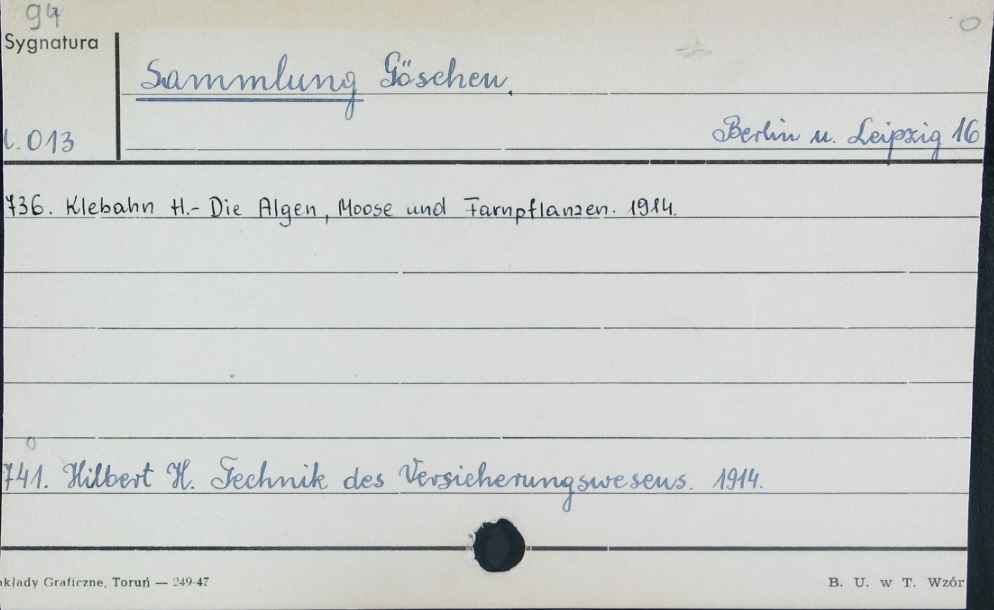 94
Sygnatura
Sammlung Göschen.
Berlin u. Leipzig 16
013
736. Klebahn H.- Die Algen, Moose und Farnpflanzen. 1914.
741. Hilbert H. Technik des Versicherungswesens. 1914.
kłady Graficzne, Toruń — 249-47
B. U. w T. Wzór